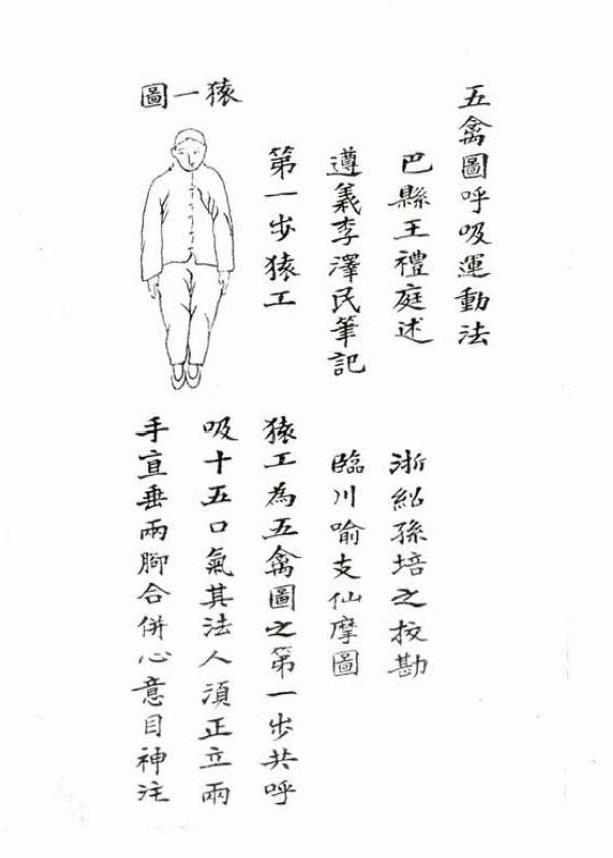 五禽圖呼吸運動法
巴縣王禮庭述
浙紹孫培之校勘
遵義李澤民筆記
臨川喻支仙摩圖
第一步猿工
猿工為五禽圖之第一步共呼
猿一圖
吸十五口氣其法人須正立兩
手直垂兩腳合併心意目神注